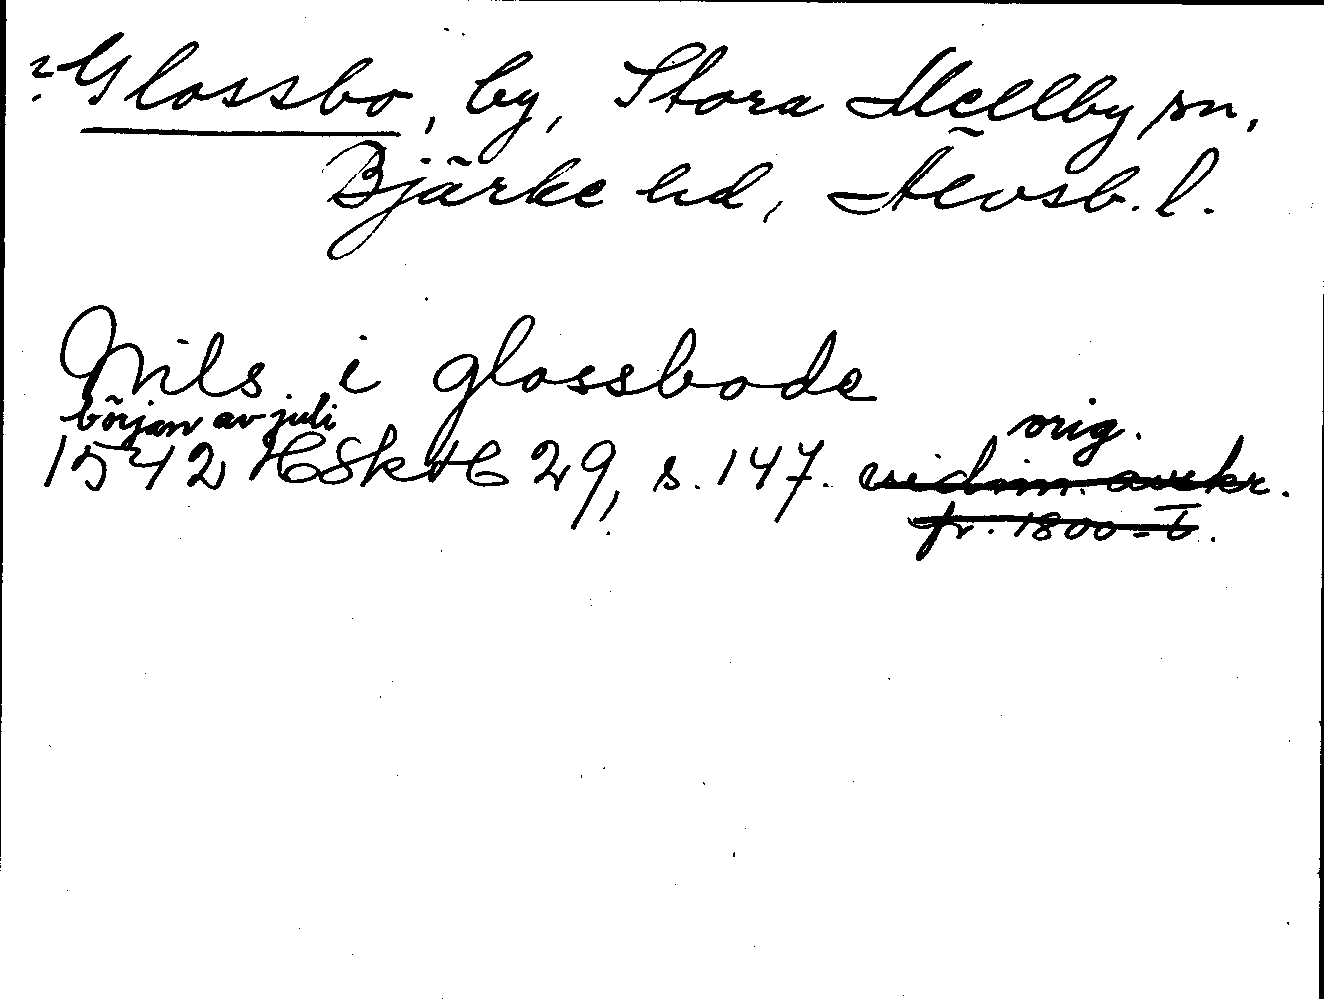 ? Glossbo, by, Stora Mellby sn,
Bjärke hd, Älvsb. l.
Nils i glossbode
början av juli
1542 HSkH 29, s. 147. orig.
vidim. avskr.
fr. 1800-t.